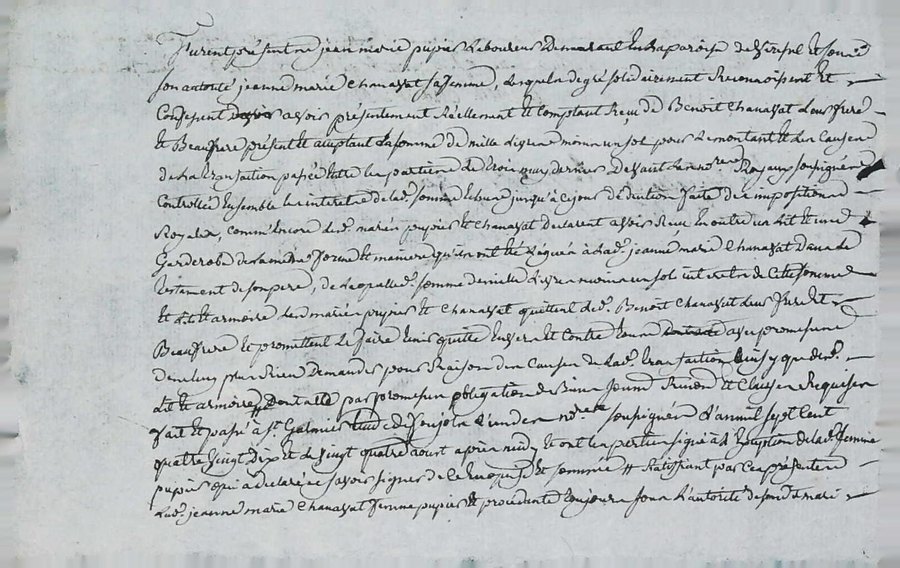 Furent présent ne jean marie pupier Laboureur demeurant En la paroisse de Et sous
son autorité jeanne marie Chanavat sa femme, Lesquels de gré solidairement Reconnoissent Et
Confessent avoir présentement Réellement Et Comptant Reçu de Benoit Chanavat Leur frere
Et Beaufrere présent Et acceptant La somme de mille Livres moins un sol pour Le montant Et Les Causes
de La transaction passée Entre Les parties Le trois may dernier Devant Les no.res Royaux soussignés
Controllée Ensemble Les interets de lad. somme Echus jusqu'à Ce jour déduction faite des impositions
Royales, comme Encore Les d. mariés pupier Et Chanavat declarent avoir Reçu En outre un Lit Et une
Garderobe de La même forme Et maniere qu'ils ont été Légués à Lad. jeanne marie Chanavat Dans Le
testament de son pere, de Laquelle d. somme de mille Livres moins un sol de Cette somme
Et Lit Et armoire Les d. mariés pupier Et Chanavat quittent Led. Benoit Chanavat Leur frere Et
Beaufrere Et promettent Le faire tenir quitte Envers Et Contre tous avec promesse
de ne Luy plus Rien Demander pour Raison des Causes de Lad. transaction ainsy que des d.
Lit Et armoire, Dont acte par promesses obligation de Biens soumis. Renon. Et Clauses Requises
fait Et passé à St. Galmier Etude de L'un des no.res soussignés L'an mil sept Cent
quatre Vingt Dix Et Le Vingt quatre aout après midy Et ont Les parties signé à L'Exception de lad. femme
pupier qui a déclaré ne savoir signer de Ce Enquise Et sommée # Ratiffiant par Ces présentes
Lad. jeanne marie Chanavat femme pupier Et procedante toujours sous L'autorité de son d. mari